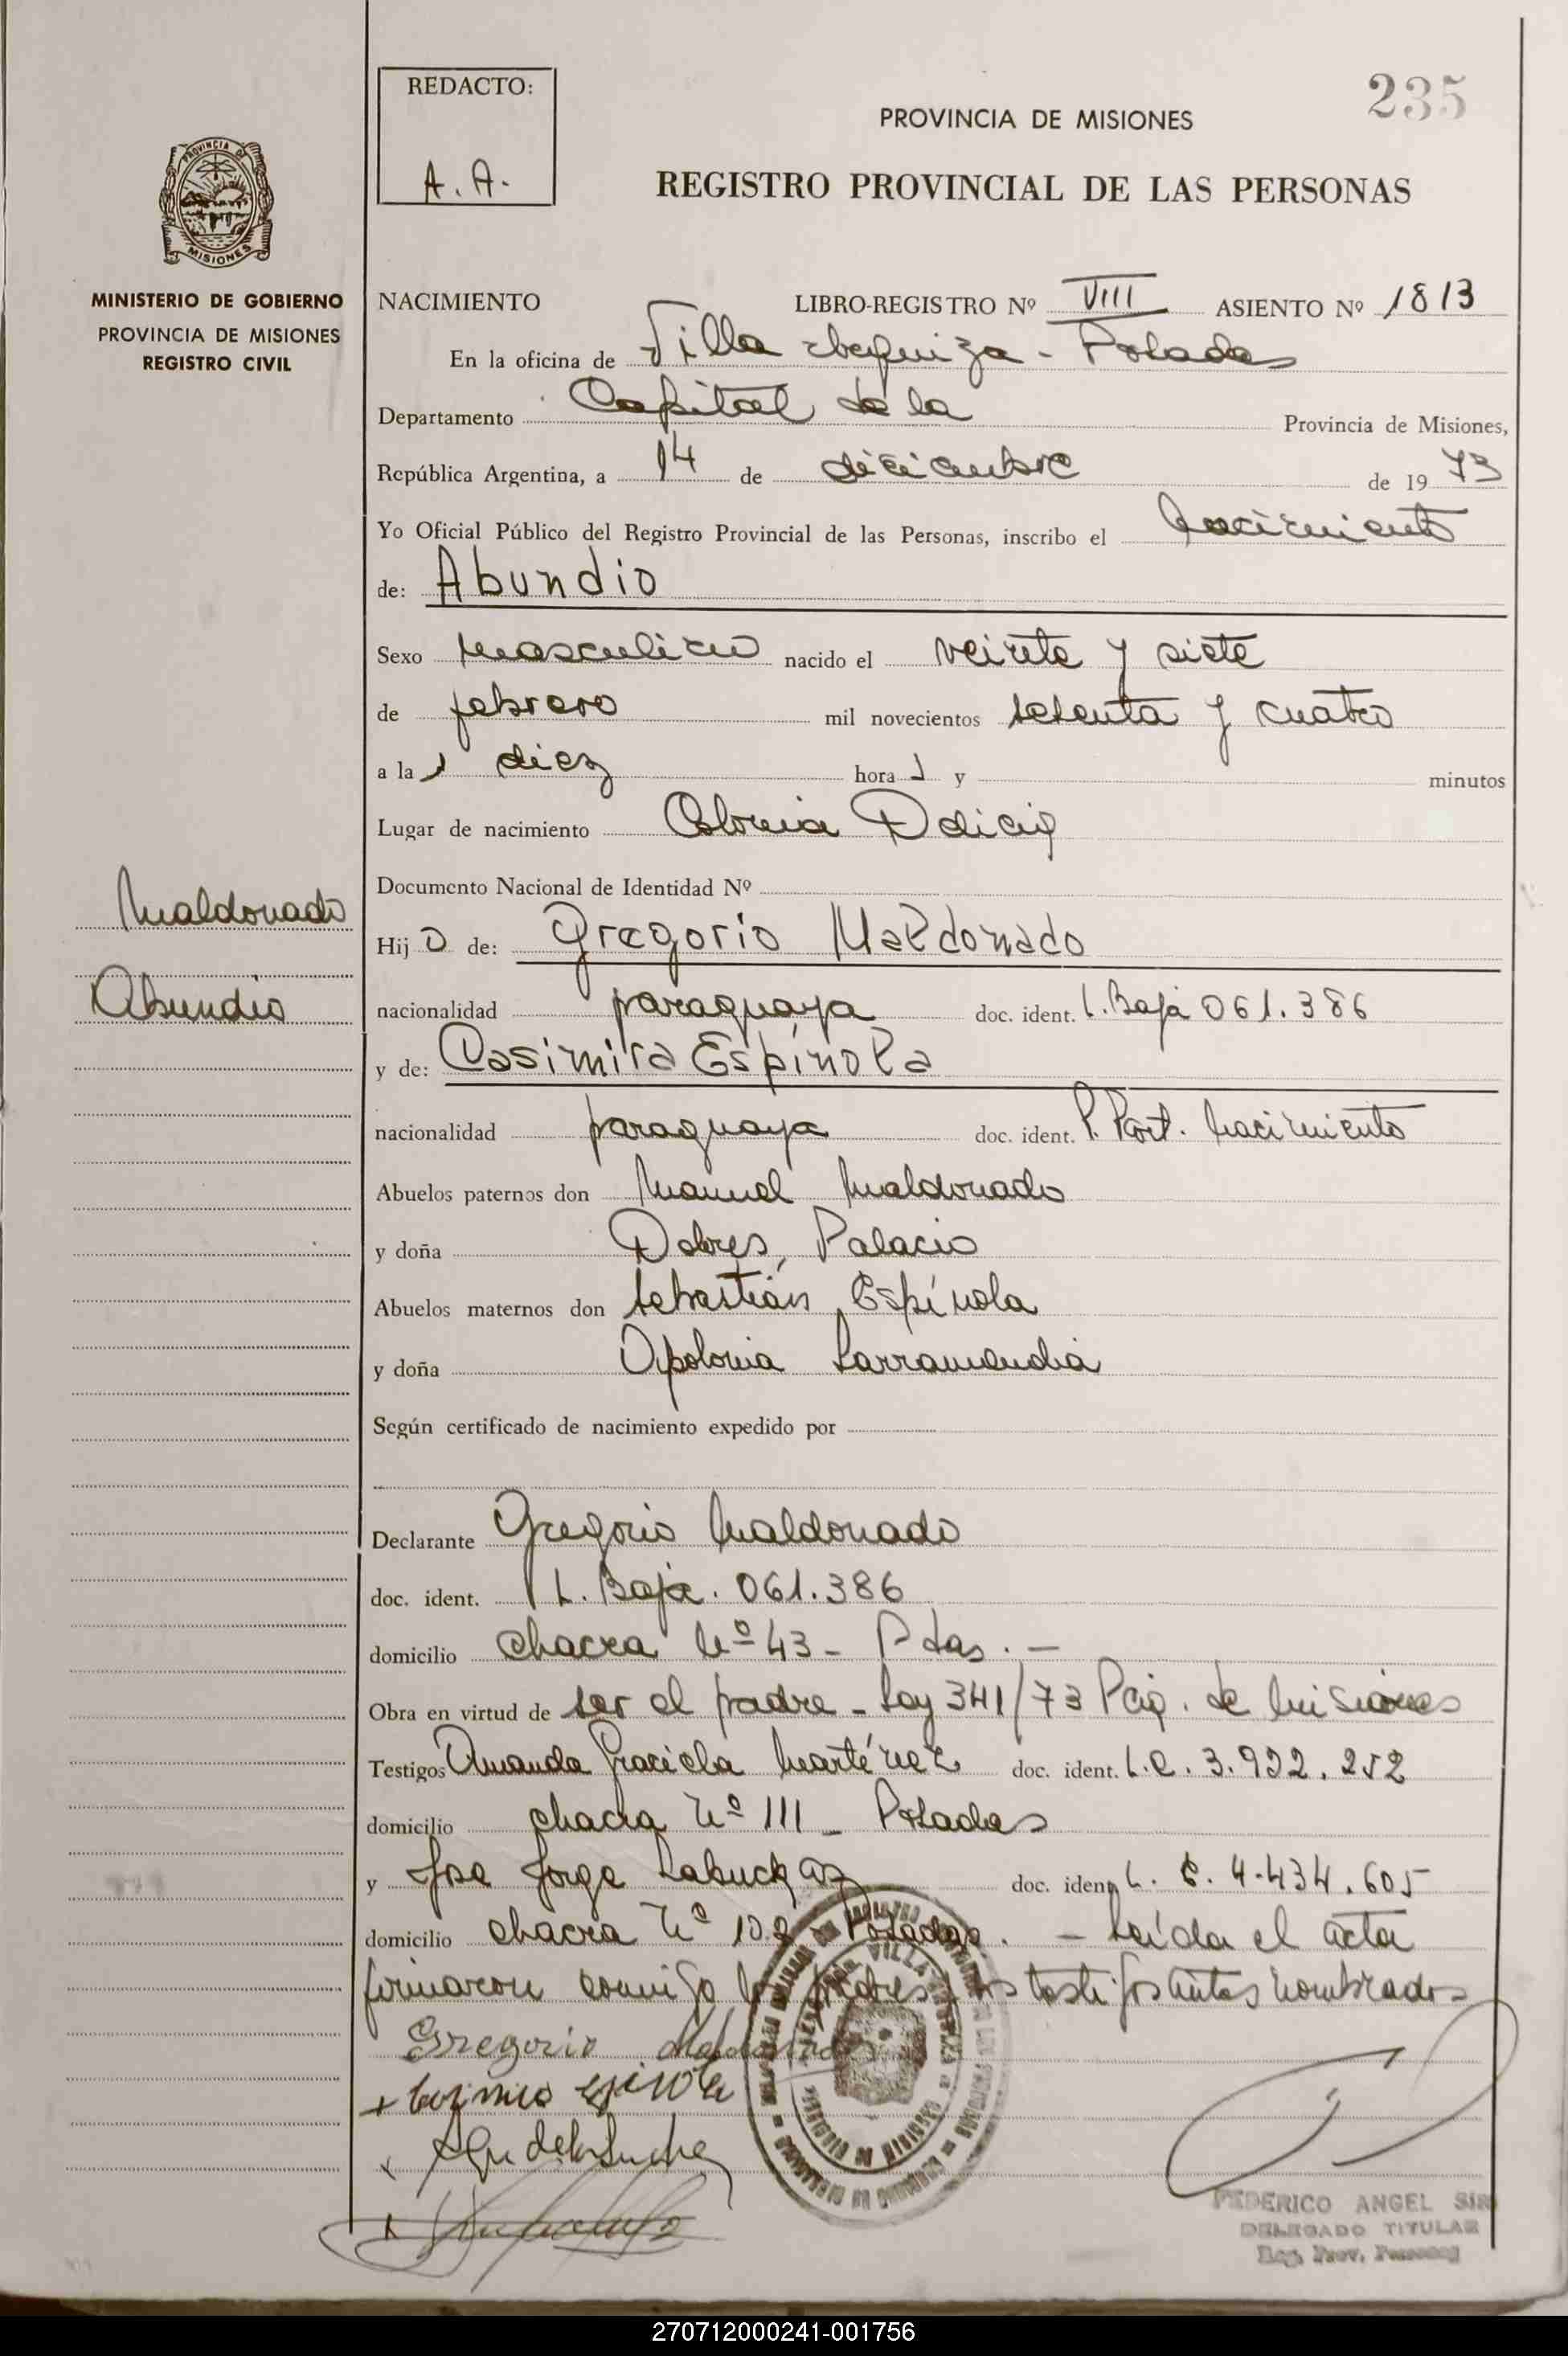 235
REDACTO:
A. A.
PROVINCIA DE MISIONES
REGISTRO PROVINCIAL DE LAS PERSONAS
PROVINCIA DE
MISIONES
MINISTERIO DE GOBIERNO
PROVINCIA DE MISIONES
REGISTRO CIVIL
NACIMIENTO LIBRO-REGISTRO Nº VIII ASIENTO Nº 1813
En la oficina de Villa - Posadas
Departamento Capital de la Provincia de Misiones,
República Argentina, a 14 de diciembre de 19 73
Yo Oficial Público del Registro Provincial de las Personas, inscribo el nacimiento
de: Abundio
Sexo masculino nacido el veinte y siete
de febrero mil novecientos setenta y cuatro
a la s diez hora s y minutos
Lugar de nacimiento Colonia
Documento Nacional de Identidad Nº
Maldonado
Abundio
Hij o de: Gregorio Maldonado
nacionalidad paraguaya doc. ident. L. Baja 061.386
y de: Casimira Espínola
nacionalidad paraguaya doc. ident. P. Part. Nacimiento
Abuelos paternos don Manuel Maldonado
y doña Dolores Palacio
Abuelos maternos don Sebastián Espínola
y doña Apolonia Larramendia
Según certificado de nacimiento expedido por
Declarante Gregorio Maldonado
doc. ident. L. Baja. 061.386
domicilio chacra Nº 43 - Pdas. -
Obra en virtud de ser el padre - Ley 341/73 Pcia. de Misiones
Testigos Amanda Graciela Martínez doc. ident. L.C. 3.932.252
domicilio chacra Nº 111 - Posadas
y José Jorge doc. iden L. E. 4.434.605
domicilio chacra Nº 102 - Posadas. - Leída el acta
firmaron conmigo los padres y los testigos antes nombrados
Gregorio Maldonado
FEDERICO ANGEL SIR
DELEGADO TITULAR
Reg. Prov. Personas
270712000241-001756